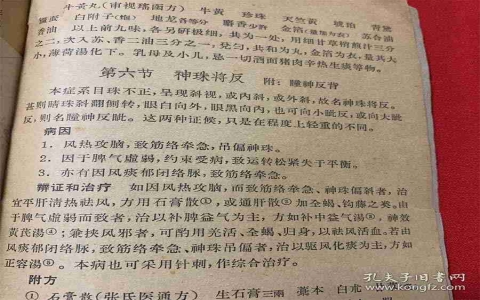 牛黄丸(审视瑶函方) 牛黄 珍珠 天竺黄 琥珀 青黛
白附子(炮) 地龙各等分 麝香少许 金箔(量加为衣) 苏合油
香油 以上前九味,各另研极细,共为一处,用细甘草梢煎汁三分
之二,次入苏、香二油三分之一,兑匀,共和为丸,金箔为衣,量儿大
小,薄荷汤化下。乳母及小儿,忌一切酒面猪肉辛热生痰等物。
第六节 神珠将反 附:瞳神反背
本症系目珠不正,呈现斜视,或内斜,或外斜,故名神珠将反。
甚则睛珠斜翻侧转,眼白向外,眼黑向内,也可向小眦反,或向大眦
反,则名瞳神反眦。这两种证候,只是在程度上轻重的不同。
病因
1. 风热攻脑,致筋络牵急,吊偏神珠。
2. 因于脾气虚弱,约束受病,致运转松紧失于平衡。
3. 亦有因风痰郁闭络脉,致筋络牵急。
辨证和治疗 如因风热攻脑,而致筋络牵急、神珠偏斜者,治
宜平肝清热祛风,方用石膏散①,或通肝散② 加全蝎、钩藤之类。由
于脾气虚弱而致者,治以补脾益气为主,方如补中益气汤③,神效
黄芪汤④;兼挟风邪者,可酌用羌活、全蝎、归身,以祛风活血。若由
风痰郁闭络脉,致筋络牵急、神珠吊偏者,治以驱风化痰为主,方如
正容汤⑤。本病也可采用针刺,作综合治疗。
附方
① 石膏散(张氏医通方) 生石膏三兩 藁本 白朮
孔夫子旧书网